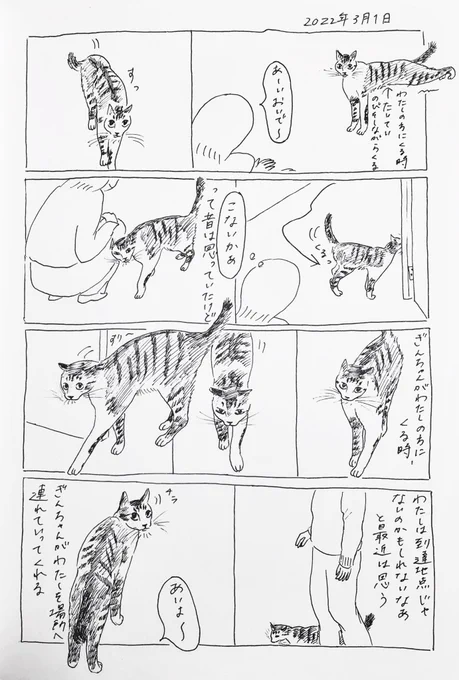 2022年3月1日
わたしの方にくる時
←たいてい
のびをしながらくる
あーいおいで〜
すっ
くるっ
こないかぁ
って昔は思っていたけど
ぎんちゃんがわたしの方に
くる時、
すりー
わたしは到達地点じゃ
ないのかもしれないなぁ
と最近は思う
チラ
あいよ〜
ぎんちゃんがわたしを場所へ
連れていってくれる